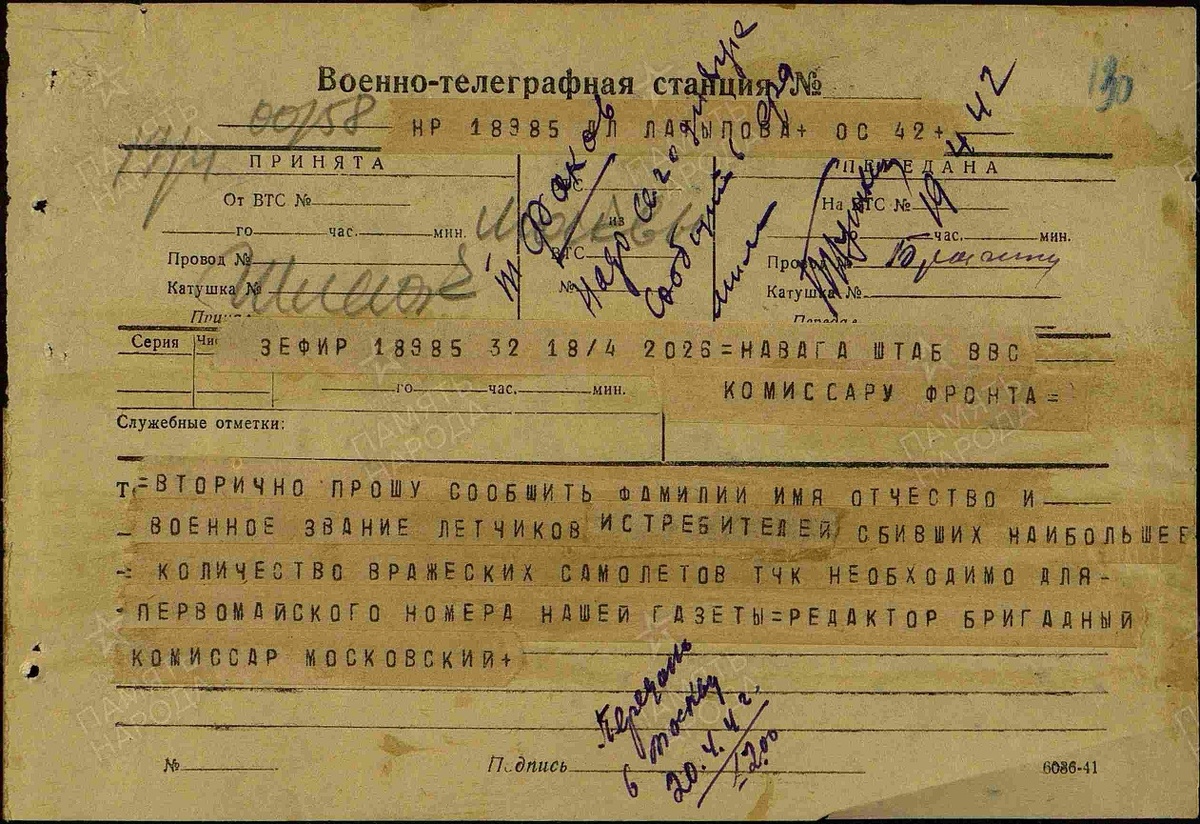 Военно-телеграфная станция №
130
00/58
НР 18985 ПЛ ЛАТЫПОВА+ ОС 42+
17/4
ПРИНЯТА
ПЕРЕДАНА
От ВТС №
из
На ВТС №
го час. мин.
час. мин.
Провод №
ВТС
Провод №
Катушка №
№
Катушка №
Серия
ЗЕФИР 18985 32 18/4 2026=НАВАГА ШТАБ ВВС
го час. мин.
КОМИССАРУ ФРОНТА=
Служебные отметки:
=ВТОРИЧНО ПРОШУ СООБШИТЬ ФАМИЛИИ ИМЯ ОТЧЕСТВО И
ВОЕННОЕ ЗВАНИЕ ЛЕТЧИКОВ ИСТРЕБИТЕЛЕЙ СБИВШИХ НАИБОЛЬШЕЕ
КОЛИЧЕСТВО ВРАЖЕСКИХ САМОЛЕТОВ ТЧК НЕОБХОДИМО ДЛЯ-
ПЕРВОМАЙСКОГО НОМЕРА НАШЕЙ ГАЗЕТЫ=РЕДАКТОР БРИГАДНЫЙ
КОМИССАР МОСКОВСКИЙ+
Надо сегодня
сообщить
19 4 42
Передано
в Москву
20.4.42 г.
12.00
№
Подпись
6086-41
ПАМЯТЬ НАРОДА